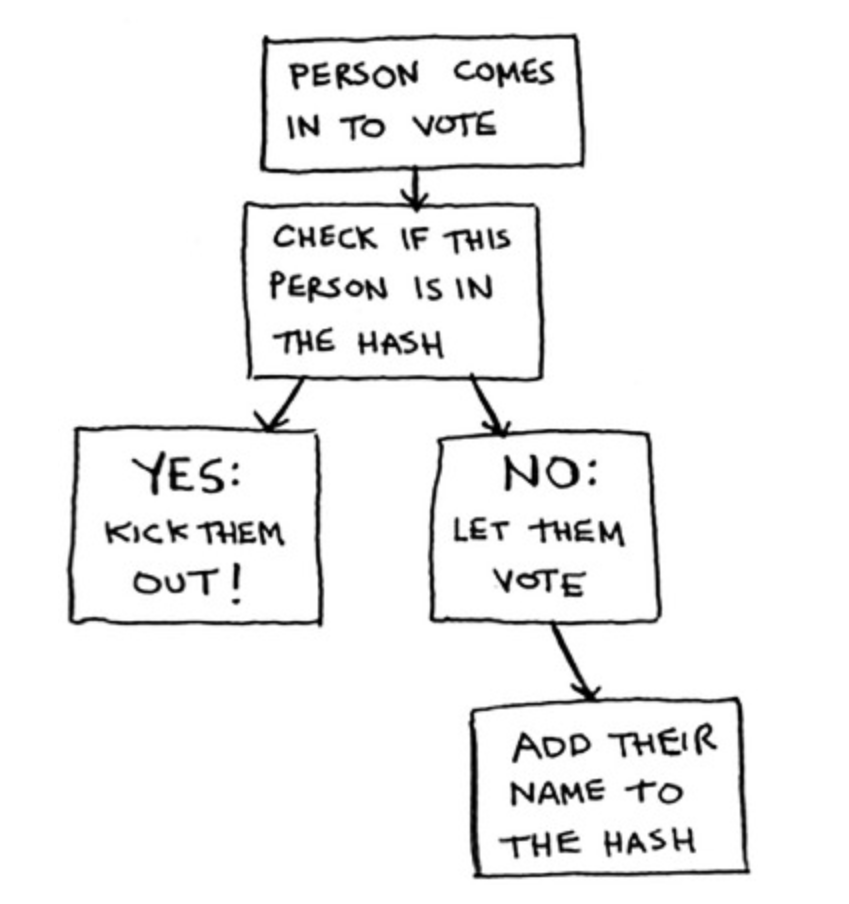 PERSON COMES
IN TO VOTE
CHECK IF THIS
PERSON IS IN
THE HASH
YES:
KICK THEM
OUT!
NO:
LET THEM
VOTE
ADD THEIR
NAME TO
THE HASH